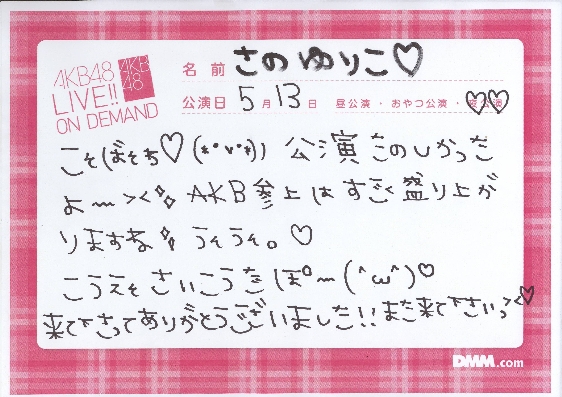 AKB48
LIVE!!
ON DEMAND
AKB
48
名前 さのゆりこ♡
公演日 5月13日 昼公演・おやつ公演・夜公演
こそばそち♡(*・v・*)) 公演たのしかった
よ〜><✨ AKB参上はすごく盛り上が
りますね✨うんうん。♡
こうえんさいこうだぽ〜(^ω^)♡
来て下さってありがとうございました!!また来て下さいっ><♡
DMM.com